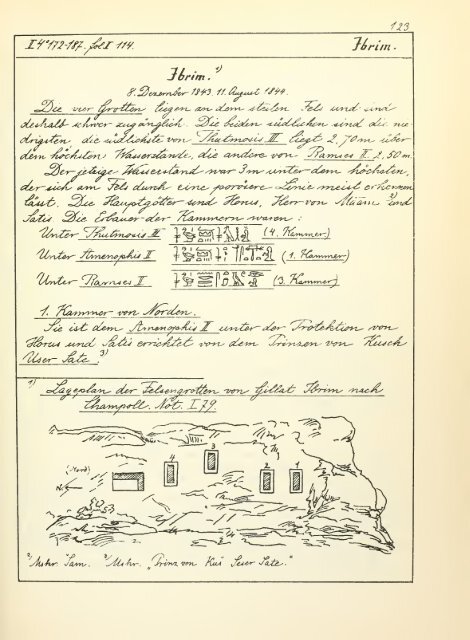 123
II 4° 172-187. fol I 114.
Ibrim.
Ibrim. 1)
8. Dezember 1843. 11. August 1844.
Die vier Grotten liegen an dem steilen Fels und sind
deshalb schwer zugänglich. Die beiden südlichen sind die nie-
drigsten die südlichste von Thutmosis III liegt 2,70 m über
dem höchsten Wasserstande, die andere von Ramses II. 2,50 m.
Der jetzige Wasserstand war 7m unter dem höchsten,
der sich am Fels durch eine poröse Linie meist erkennen
lässt. Die Hauptgötter sind Horus, Herr von 2) und
Satis. Die Erbauer der Kammern waren :
Unter Thutmosis III (4. Kammer)
Unter Amenophis II (1. Kammer)
Unter Ramses II (3. Kammer)
1. Kammer von Norden.
Sie ist dem Amenophis II unter der Protektion von
Horus und Satis errichtet von dem Prinzen von Kusch
User Sate. 3)
1) Lageplan der Felsengrotten von Gillat Ibrim nach
Champoll. Not. I 79.
3
4
2
1
(Nord)
2) Mskr. 3) Mskr. „Prinz von Kus Seser Sate."